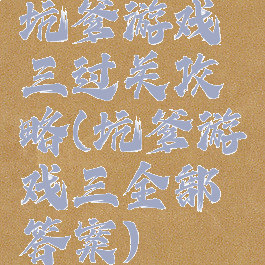 坑爹游戏
三过关攻
略(坑爹游
戏三全部
答案)